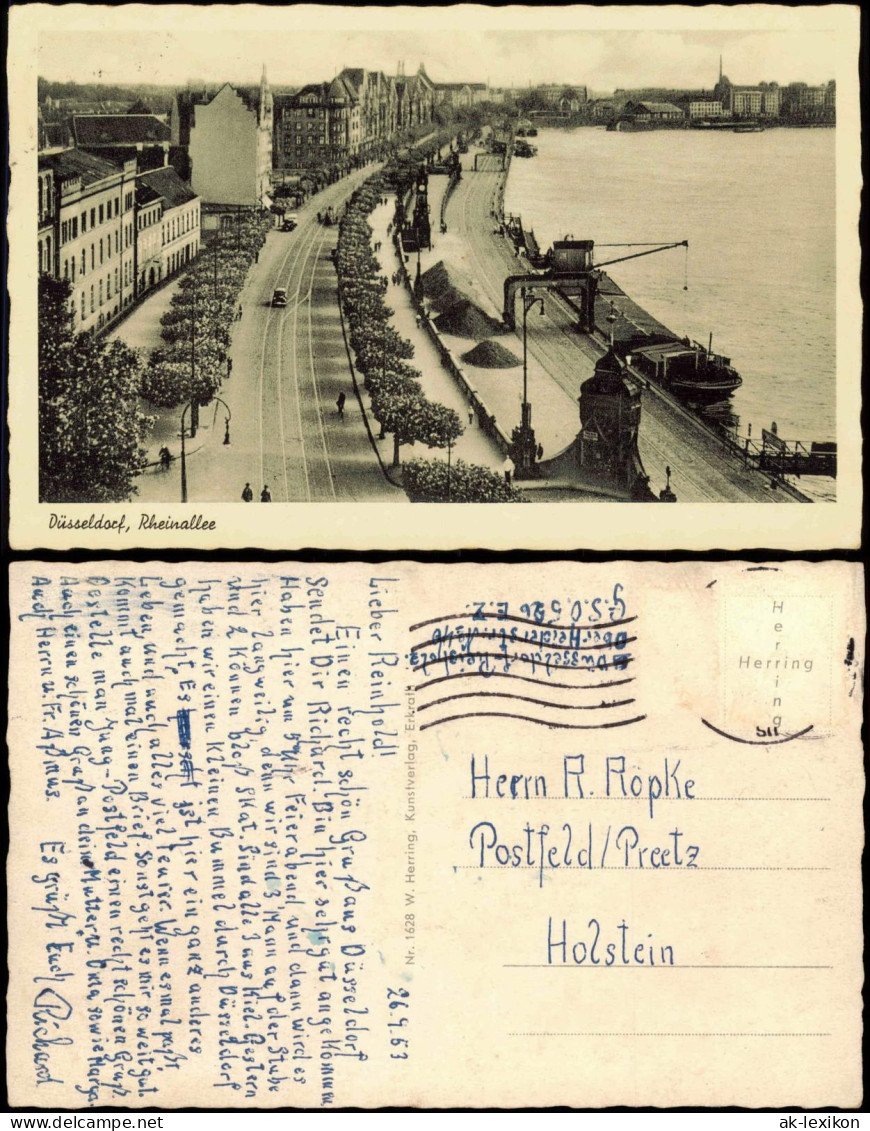 Düsseldorf, Rheinallee
26.9.53
Lieber Reinhold!
Einen recht schön Gruß aus Düsseldorf
Sendet Dir Richard. Bin hier sehr gut angekommen
Haben hier um 5 Uhr Feierabend und dann wird es
hier langweilig, denn wir sind 3 Mann auf der Stube
und 2 Können bloß Skat. Sind alle 3 aus Kiel. Gestern
haben wir einen Kleinen Bummel durch Düsseldorf
gemacht. Es ist hier ein ganz anderes
Leben und auch alles viel teurer. Wenn es mal paßt
Kommt auch mal einen Brief. Sonst geht es mir soweit gut.
Bestelle man Jung-Postfeld einen recht schönen Gruß.
Auch einen schönen Gruß an deine Mutter u. Oma, sowie Marga.
Auch Herrn u. Fr. Aßmus.
Es grüßt Euch Richard
Nr. 1628 W. Herring, Kunstverlag, Erkrath
Düsseldorf-Reisholz
G.S.O. 526 E.Z.
Herring
Herring
Herrn R. Röpke
Postfeld/Preetz
Holstein
ak-lexikon.com